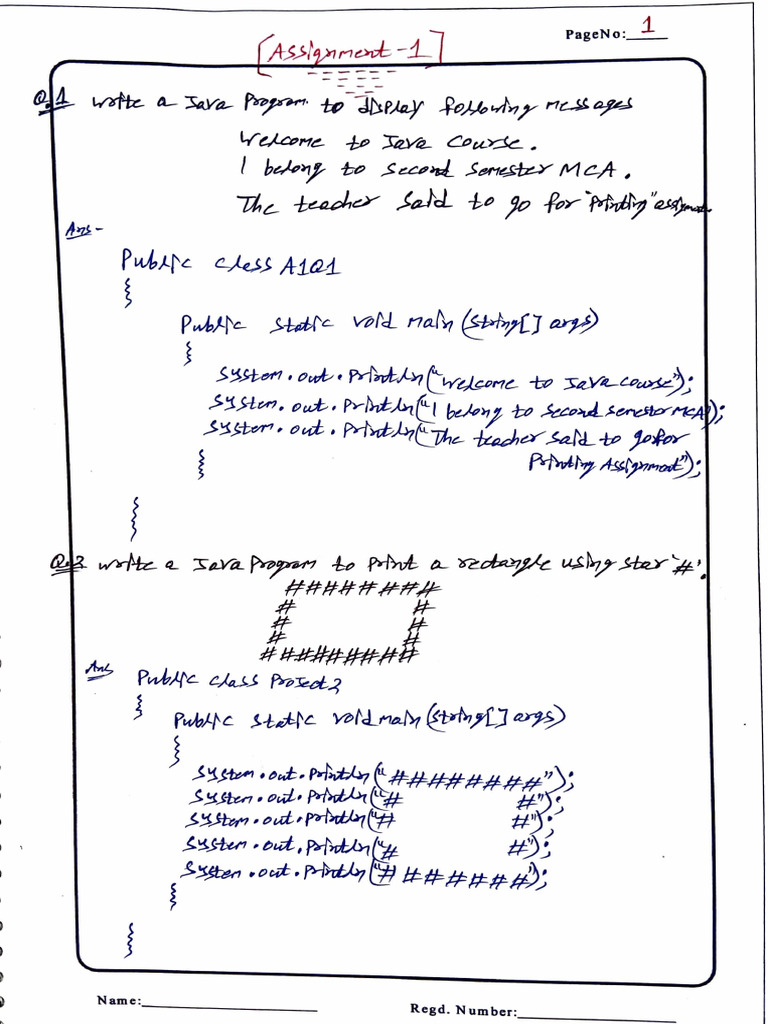 PageNo: 1
[Assignment-1]
Q.1 write a Java Program to display following messages
Welcome to Java Course.
I belong to second semester MCA.
The teacher said to go for "Printing" assignment
Ans-
Public class A1Q1
{
Public static void main (string[] args)
{
system.out.println("Welcome to Java course");
system.out.println("I belong to second semester MCA");
system.out.println("The teacher said to go for
Printing Assignment");
}
}
Q.2 write a Java Program to print a rectangle using star '#'.
########
# #
# #
# #
########
Ans
Public class Project2
{
Public static void main (string[] args)
{
system.out.println("########");
system.out.println("# #");
system.out.println("# #");
system.out.println("# #");
system.out.println("#######");
}
}
Name:
Regd. Number: